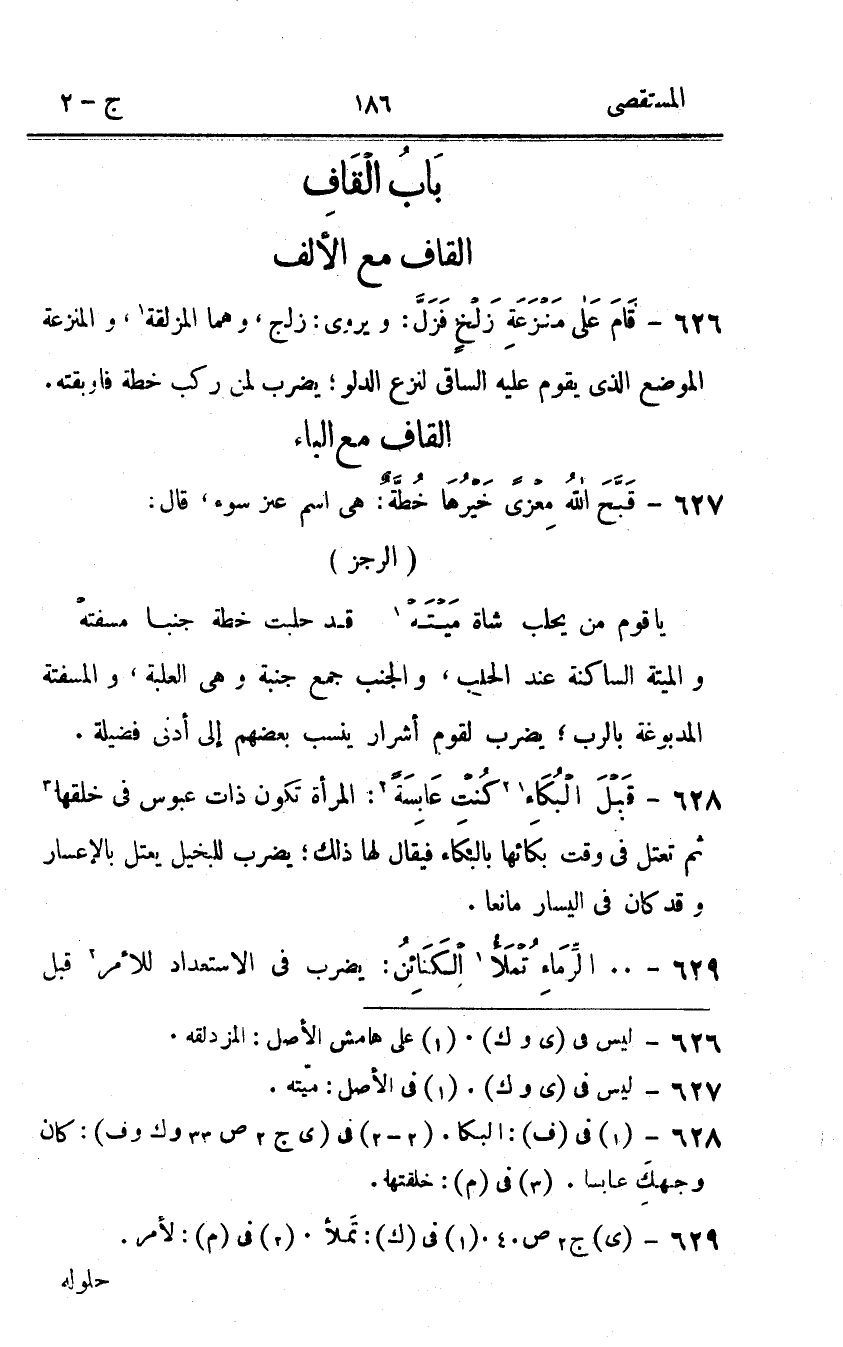 المستقصى ١٨٦ ج – ٢
بَابُ الْقَافِ
القاف مع الألف
٦٢٦ – قَامَ عَلَى مَنْزَعَةِ زَلْخٍ فَزَلَّ: و يروى: زلج، و هما المزلقة١، و المنزعة
الموضع الذى يقوم عليه الساقى لنزع الدلو؛ يضرب لمن ركب خطة فاوبقته.
القاف مع الباء
٦٢٧ – قَبَّحَ اللهُ مِعْزًى خَيْرُهَا خُطَّةٌ: هى اسم عنز سوء، قال:
( الرجز )
ياقوم من يحلب شاة مَيْتَهْ١ قد حلبت خطة جنبا مسفتهْ
و الميتة الساكنة عند الحلب، و الجنب جمع جنبة و هى العلبة، و المسفتة
المدبوغة بالرب؛ يضرب لقوم أشرار ينسب بعضهم إلى أدنى فضيلة .
٦٢٨ – قَبْلَ الْبُكَاءِ١ ٢كُنْتِ عَابِسَةً٢: المرأة تكون ذات عبوس فى خلقها٣
ثم تعتل فى وقت بكائها بالبكاء فيقال لها ذلك؛ يضرب للبخيل يعتل بالإعسار
و قد كان فى اليسار مانعا .
٦٢٩ – .. الرِّمَاءِ تُمْلَأُ١ الْكَنَائِنُ: يضرب فى الاستعداد للأمر٢ قبل
٦٢٦ – ليس فى (ى و ك) . (١) على هامش الأصل: المزدلقه .
٦٢٧ – ليس فى (ى و ك) . (١) فى الأصل: ميّته .
٦٢٨ – (١) فى (ف): البكا . (٢–٢) فى (ى ج ٢ ص ٣٣ و ك و ف): كان
وجهكِ عابسا . (٣) فى (م): خلقتها.
٦٢٩ – (ى) ج٢ ص٤٠ .(١) فى (ك): تَملأ . (٢) فى (م): لأمر .
حلوله